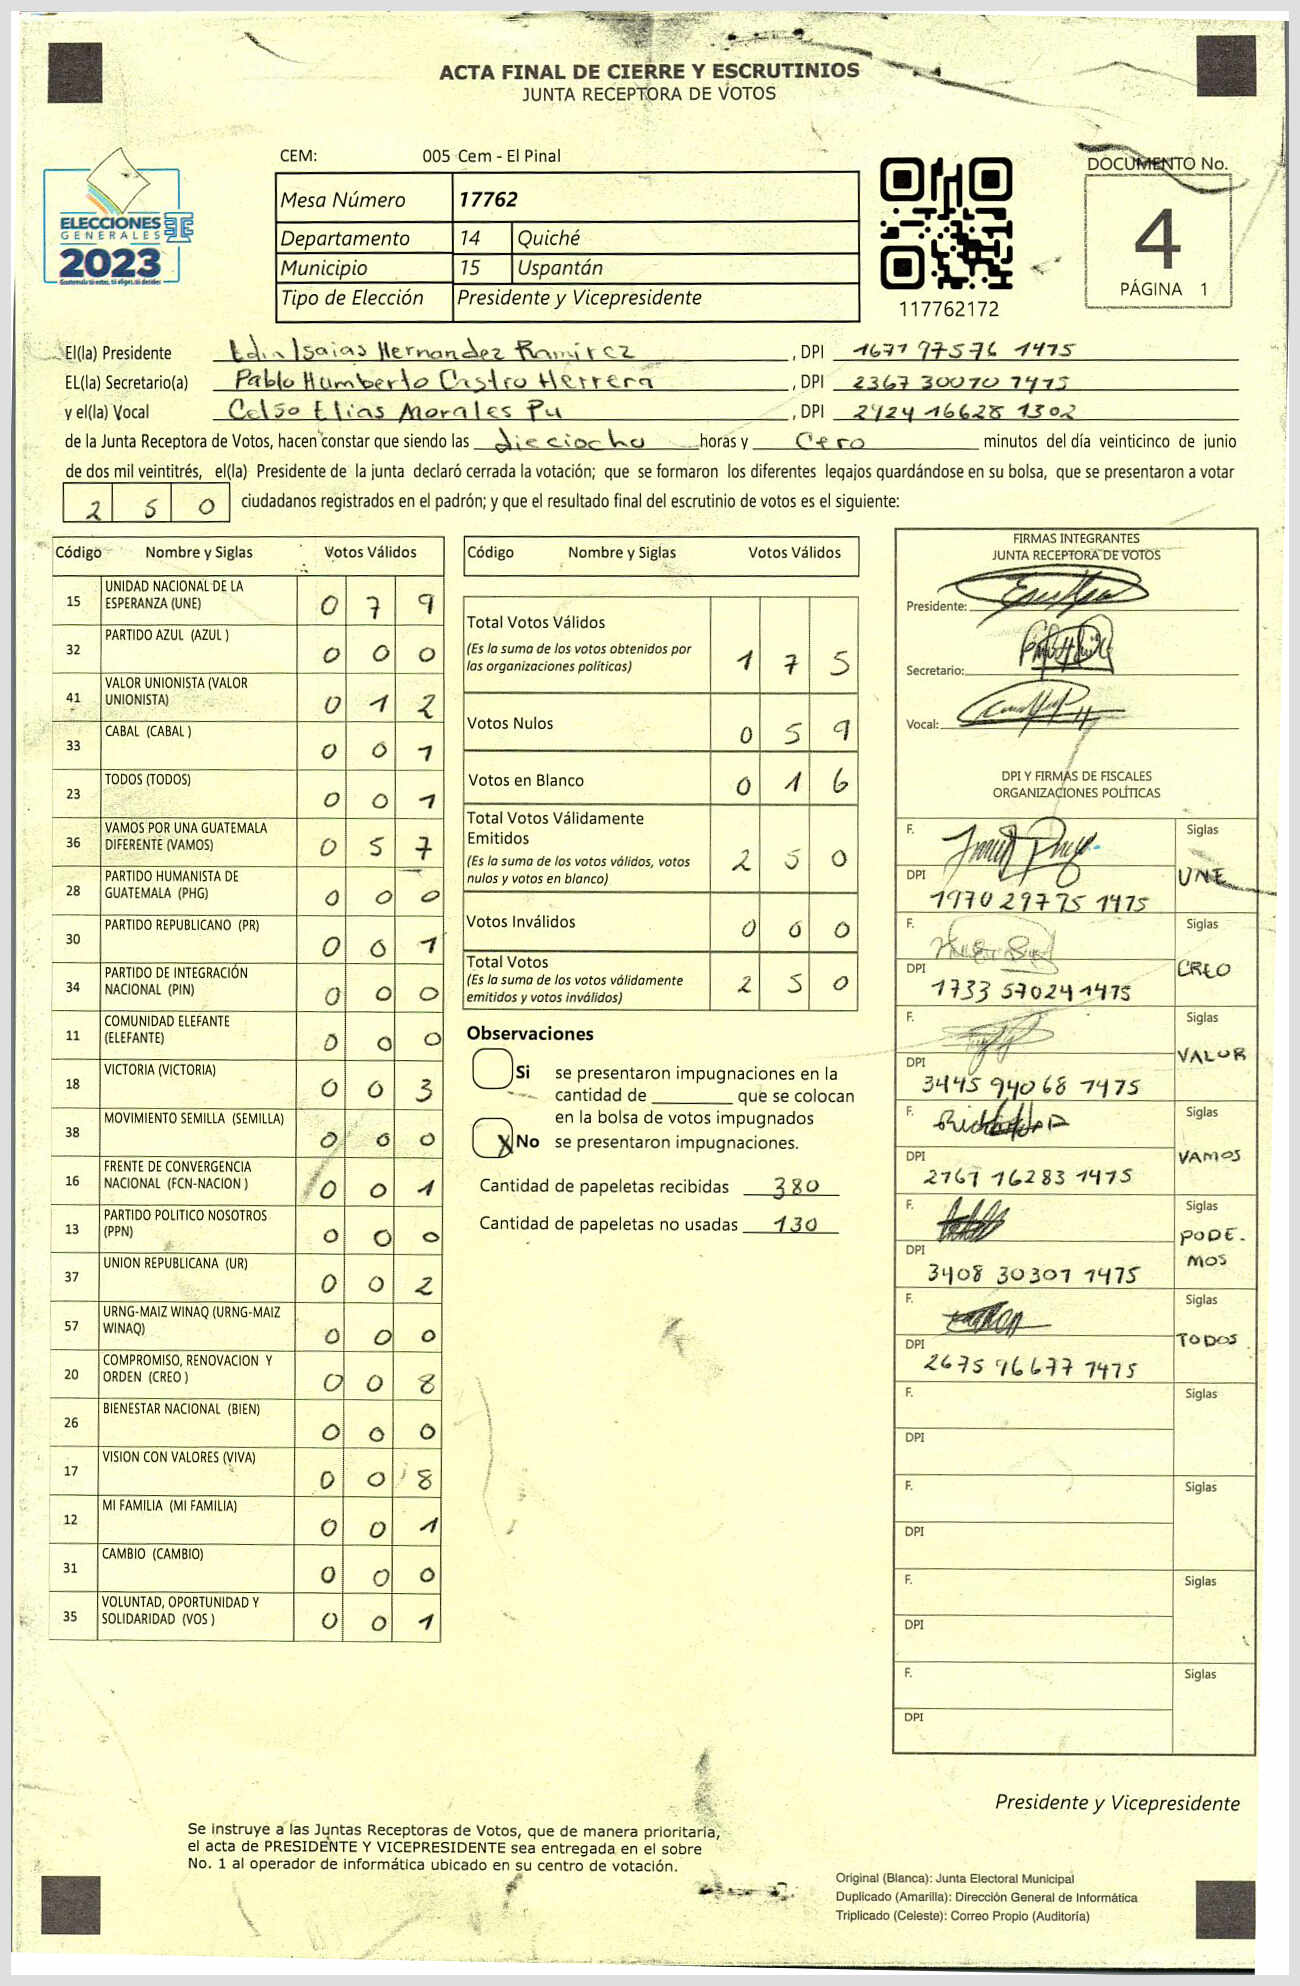 ACTA FINAL DE CIERRE Y ESCRUTINIOS
JUNTA RECEPTORA DE VOTOS
CEM: 005 Cem - El Pinal
DOCUMENTO No.
4
PÁGINA 1
ELECCIONES
GENERALES
2023
Mesa Número 17762
Departamento 14 Quiché
Municipio 15 Uspantán
Tipo de Elección Presidente y Vicepresidente
117762172
El(la) Presidente Edin Isaias Hernandez Ramirez , DPI 1671 97576 1475
EL(la) Secretario(a) Pablo Humberto Castro Herrera , DPI 2367 30070 1475
y el(la) Vocal Celso Elias Morales Pu , DPI 2424 16628 1302
de la Junta Receptora de Votos, hacen constar que siendo las dieciocho horas y Cero minutos del día veinticinco de junio
de dos mil veintitrés, el(la) Presidente de la junta declaró cerrada la votación; que se formaron los diferentes legajos quardándose en su bolsa, que se presentaron a votar
2 5 0 ciudadanos registrados en el padrón; y que el resultado final del escrutinio de votos es el siguiente:
Código Nombre y Siglas Votos Válidos
15 UNIDAD NACIONAL DE LA ESPERANZA (UNE) 0 7 9
32 PARTIDO AZUL (AZUL ) 0 0 0
41 VALOR UNIONISTA (VALOR UNIONISTA) 0 1 2
33 CABAL (CABAL ) 0 0 1
23 TODOS (TODOS) 0 0 1
36 VAMOS POR UNA GUATEMALA DIFERENTE (VAMOS) 0 5 7
28 PARTIDO HUMANISTA DE GUATEMALA (PHG) 0 0 0
30 PARTIDO REPUBLICANO (PR) 0 0 1
34 PARTIDO DE INTEGRACIÓN NACIONAL (PIN) 0 0 0
11 COMUNIDAD ELEFANTE (ELEFANTE) 0 0 0
18 VICTORIA (VICTORIA) 0 0 3
38 MOVIMIENTO SEMILLA (SEMILLA) 0 0 0
16 FRENTE DE CONVERGENCIA NACIONAL (FCN-NACION ) 0 0 1
13 PARTIDO POLITICO NOSOTROS (PPN) 0 0 0
37 UNION REPUBLICANA (UR) 0 0 2
57 URNG-MAIZ WINAQ (URNG-MAIZ WINAQ) 0 0 0
20 COMPROMISO, RENOVACION Y ORDEN (CREO ) 0 0 8
26 BIENESTAR NACIONAL (BIEN) 0 0 0
17 VISION CON VALORES (VIVA) 0 0 8
12 MI FAMILIA (MI FAMILIA) 0 0 1
31 CAMBIO (CAMBIO) 0 0 0
35 VOLUNTAD, OPORTUNIDAD Y SOLIDARIDAD (VOS ) 0 0 1
Código Nombre y Siglas Votos Válidos
Total Votos Válidos
(Es la suma de los votos obtenidos por
las organizaciones políticas) 1 7 5
Votos Nulos 0 5 9
Votos en Blanco 0 1 6
Total Votos Válidamente
Emitidos
(Es la suma de los votos válidos, votos
nulos y votos en blanco) 2 5 0
Votos Inválidos 0 0 0
Total Votos
(Es la suma de los votos válidamente
emitidos y votos inválidos) 2 5 0
Observaciones
Si se presentaron impugnaciones en la
cantidad de ________ que se colocan
en la bolsa de votos impugnados
X No se presentaron impugnaciones.
Cantidad de papeletas recibidas 380
Cantidad de papeletas no usadas 130
FIRMAS INTEGRANTES
JUNTA RECEPTORA DE VOTOS
Presidente:
Secretario:
Vocal:
DPI Y FIRMAS DE FISCALES
ORGANIZACIONES POLÍTICAS
F. Siglas
DPI 1970 29775 1475 UNE
F. Siglas
DPI 1733 57024 1475 CREO
F. Siglas
DPI 3445 94068 1475 VALOR
F. Siglas
DPI 2767 16283 1475 VAMOS
F. Siglas
DPI 3408 30301 1475 PODE-
MOS
F. Siglas
DPI 2675 96677 1475 TODOS
F. Siglas
DPI
F. Siglas
DPI
F. Siglas
DPI
F. Siglas
DPI
Presidente y Vicepresidente
Se instruye a las Juntas Receptoras de Votos, que de manera prioritaria,
el acta de PRESIDENTE Y VICEPRESIDENTE sea entregada en el sobre
No. 1 al operador de informática ubicado en su centro de votación.
Original (Blanca): Junta Electoral Municipal
Duplicado (Amarilla): Dirección General de Informática
Triplicado (Celeste): Correo Propio (Auditoría)